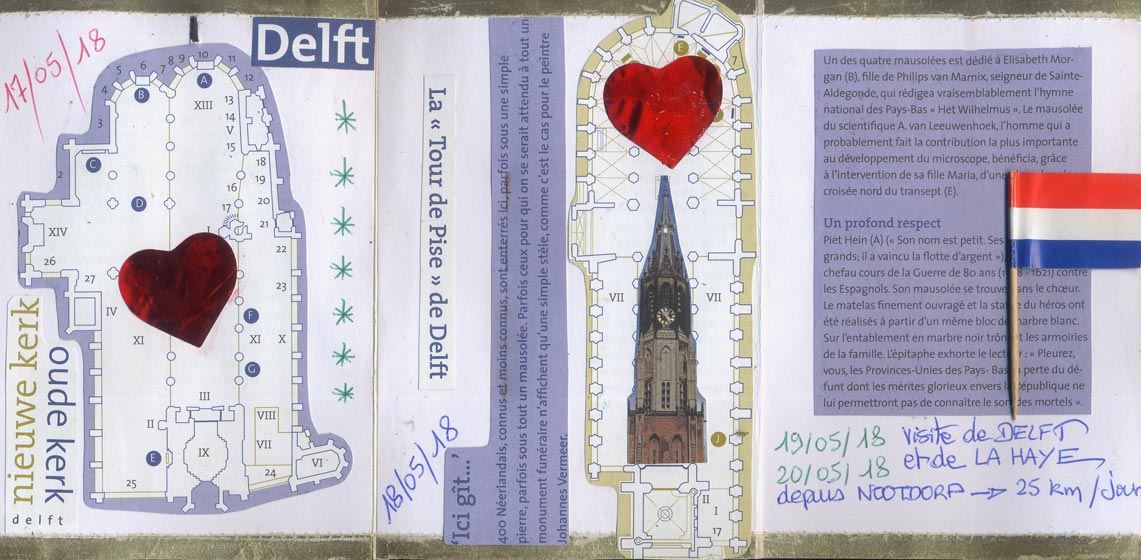 17/05/18
Delft
5
6
7
8
9
10
11
12
4
A
B
XIII
13
3
14
V
15
C
2
18
16
19
D
20
17
21
XIV
I
22
26
27
23
IV
F
XI
XI
X
G
III
II
VIII
IX
VII
E
VI
24
25
nieuwe kerk
oude kerk
delft
La « Tour de Pise » de Delft
18/05/18
'Ici gît...'
400 Néerlandais, connus et moins connus, sont enterrés ici, parfois sous une simple
pierre, parfois sous tout un mausolée. Parfois ceux pour qui on se serait attendu à tout un
monument funéraire n'affichent qu'une simple stèle, comme c'est le cas pour le peintre
Johannes Vermeer.
E
7
VII
VII
J
II
I
17
Un des quatre mausolées est dédié à Elisabeth Mor-
gan (B), fille de Philips van Marnix, seigneur de Sainte-
Aldegonde, qui rédigea vraisemblablement l'hymne
national des Pays-Bas « Het Wilhelmus ». Le mausolée
du scientifique A. van Leeuwenhoek, l'homme qui a
probablement fait la contribution la plus importante
au développement du microscope, bénéficia, grâce
à l'intervention de sa fille Maria, d'une
croisée nord du transept (E).
Un profond respect
Piet Hein (A) (« Son nom est petit. Ses
grands; il a vaincu la flotte d'argent »).
chef au cours de la Guerre de 80 ans (1 8 - 1621) contre
les Espagnols. Son mausolée se trouve ans le chœur.
Le matelas finement ouvragé et la sta du héros ont
été réalisés à partir d'un même bloc de marbre blanc.
Sur l'entablement en marbre noir trôn t les armoiries
de la famille. L'épitaphe exhorte le lecteur : « Pleurez,
vous, les Provinces-Unies des Pays-Bas perte du dé-
funt dont les mérites glorieux envers la République ne
lui permettront pas de connaître le sort des mortels ».
19/05/18 visite de DELFT
20/05/18 et de LA HAYE
depuis NOOTDORP → 25 km/jour